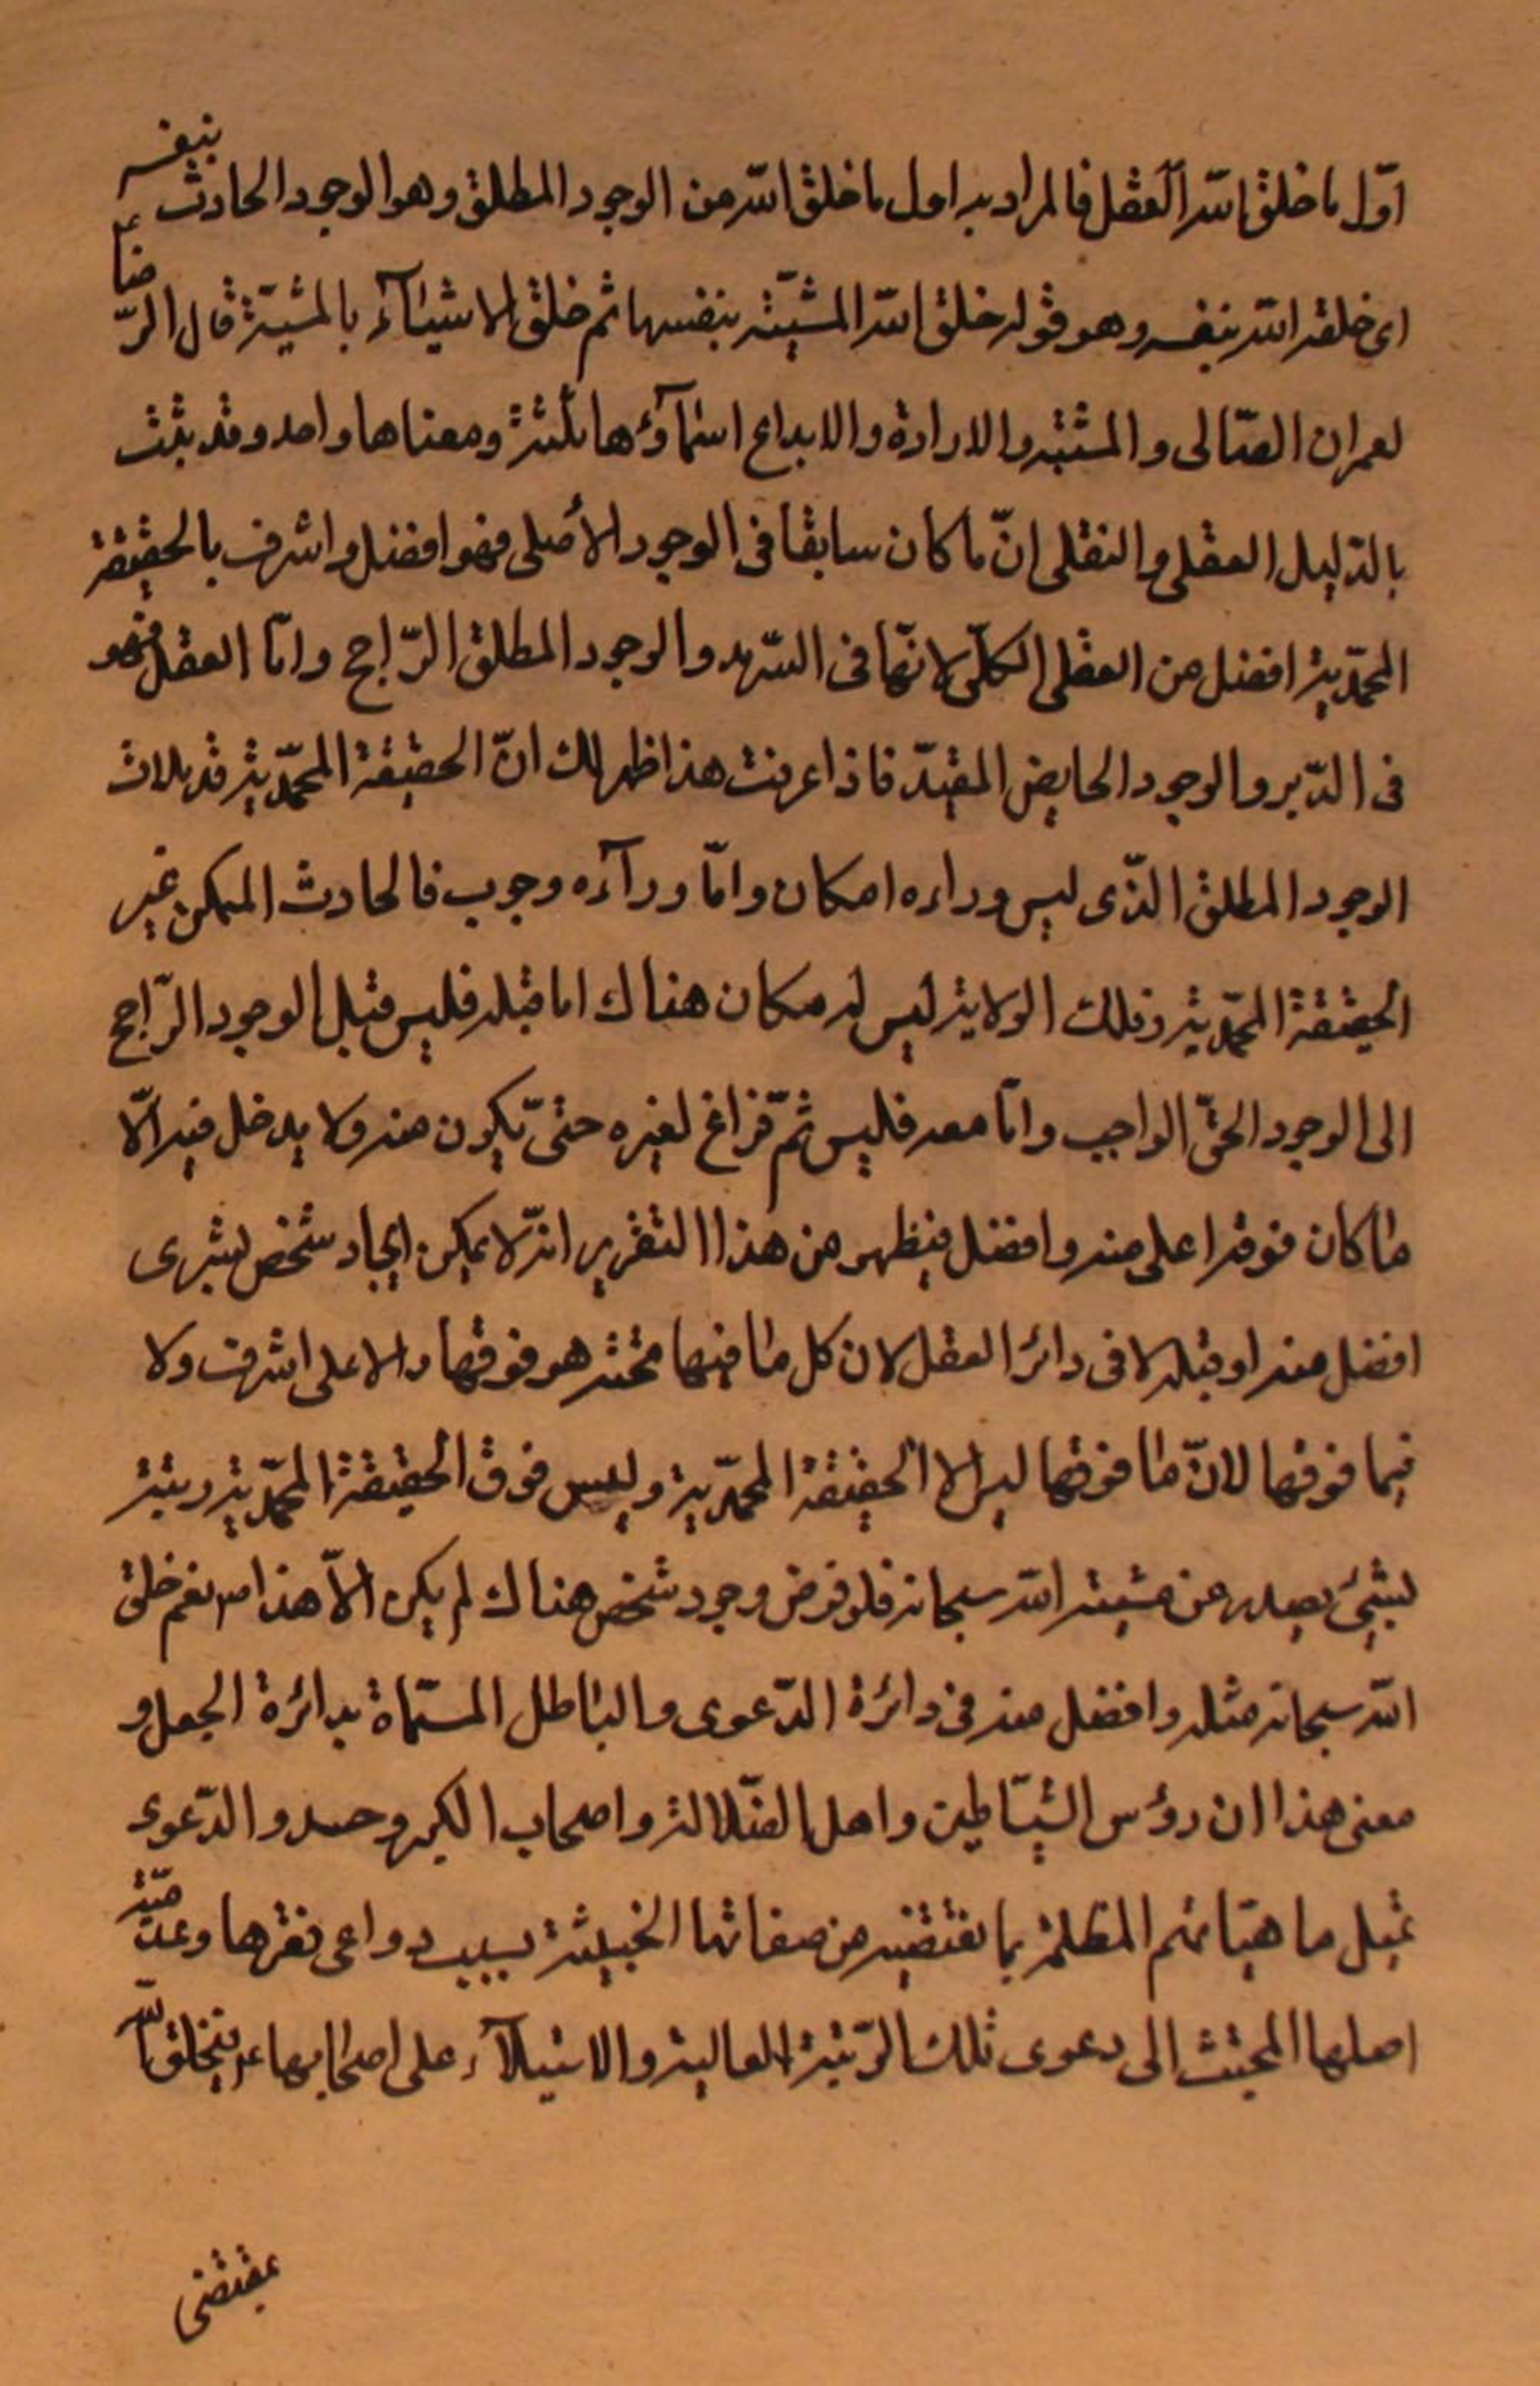 اوّل ما خلق الله العقل فالمراد به اول ما خلق الله من الوجود المطلق وهو الوجود الحادث بنفسه
اى خلقه الله بنفسه وهو قوله خلق الله المشيّة بنفسها ثم خلق الاشيآء بالمشيّة قال الرّضا ع
لعمران الصّابى والمشية والارادة والابداع اسمآؤها ثلثة ومعناها واحد وقد ثبت
بالدّليل العقلى والنقلى انّ ما كان سابقا فى الوجود الأصلى فهو افضل واشرف بالحقيقة
المحمّدية افضل من العقلى الكلّى لانّها فى السّرمد والوجود المطلق الرّاجح وامّا العقل فهو
فى الدّهر والوجود الجايض المقيّد فاذا عرفت هذا ظهر لك انّ الحقيقة المحمّدية قد ملات
الوجود المطلق الذّى ليس وراءه امكان وامّا ورآءه وجوب فالحادث الممكن غير
الحقيقة المحمّدية فى تلك الولاية ليس له مكان هناك اما قبله فليس قبل الوجود الرّاجح
الى الوجود الحقّ الواجب وامّا معه فليس ثمّ فراغ لغيره حتىّ يكون منه ولا يدخل فيه الّا
ما كان فوقه اعلى منه وافضل فيظهر من هذا التقرير انّه لا يمكن ايجاد شخص بشرى
افضل منه او قبله لا فى دائرة العقل لان كل ما فيها تحته هو فوقها والاعلى اشرف ولا
فيما فوقها لانّ ما فوقها ليس الا الحقيقة المحمّدية وليس فوق الحقيقة المحمّدية رتبة
لشئ يصدر عن مشية الله سبحانه فلو فرض وجود شخص هناك لم يكن الّا هذا ص نعم خلق
الله سبحانه مثله وافضل منه فى دائرة الدّعوى والباطل المسمّاة بدائرة الجهل و
معنى هذا ان رؤس الشيّاطين واهل الضّلالة واصحاب الكبر وحسد والدّعوى
تميل ماهيّاتهم المظلمة بما تقتضيه من صفاتها الخبيثة بسبب دواعى فقرها وعدميّة
اصلها المجتث الى دعوى تلك الرّتبة العالية والاستيلآء على اصحابها ع فيخلق الله
بمقتضى